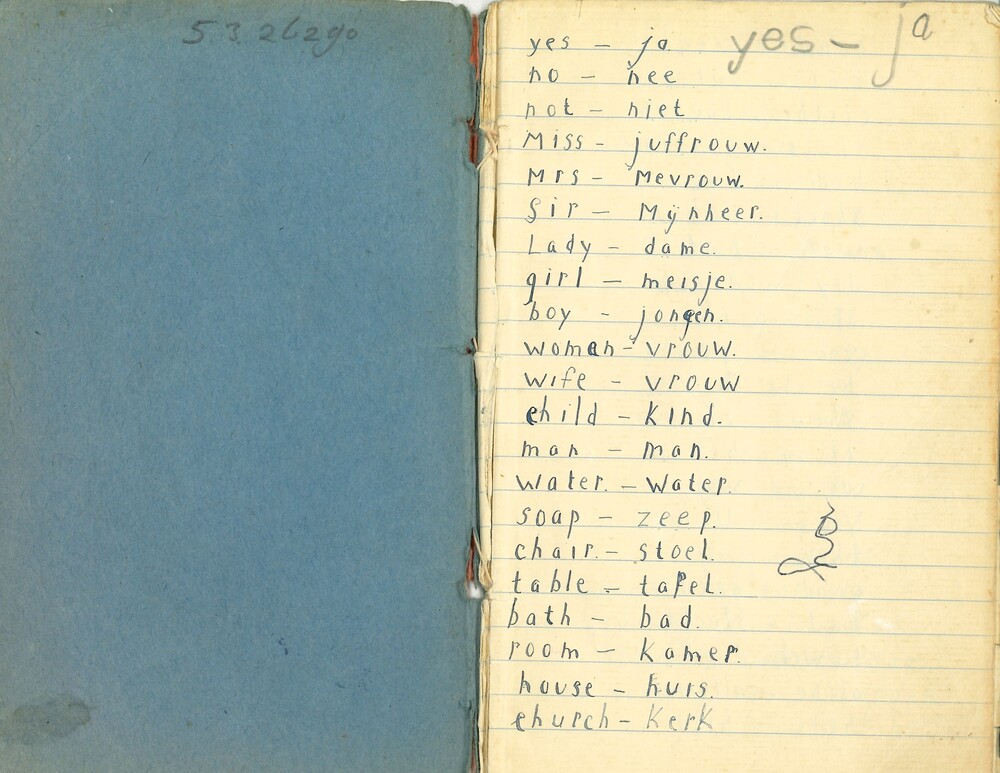 yes – ja
yes – ja
no – nee
not – niet
Miss – juffrouw.
Mrs – Mevrouw.
Sir – Mÿnheer.
Lady – dame.
girl – meisje.
boy – jongen.
woman – vrouw.
wife – vrouw
child – kind.
man – man.
water. – water.
soap – zeep.
chair. – stoel.
table – tafel.
bath – bad.
room – kamer.
house – huis.
church – Kerk